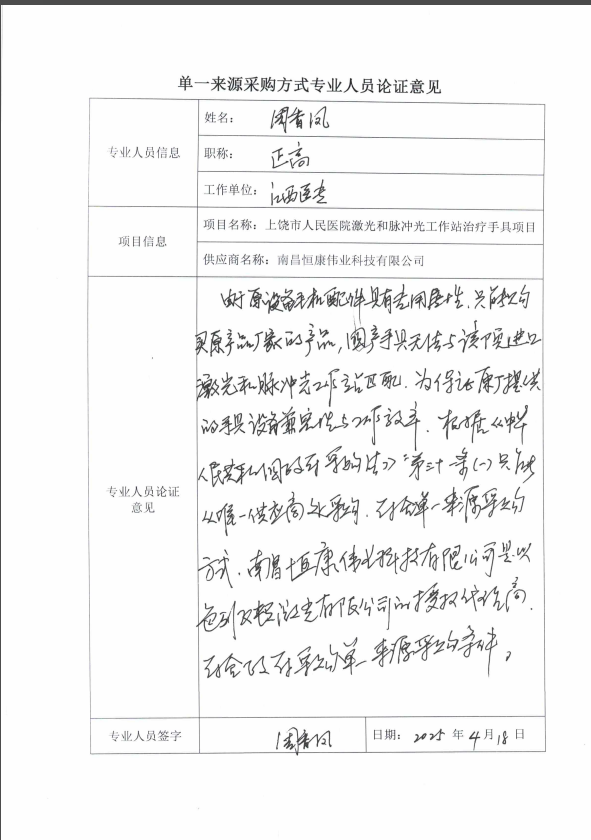 单一来源采购方式专业人员论证意见
专业人员信息
姓名： 周香凤
职称： 正高
工作单位： 江西医专
项目信息
项目名称：上饶市人民医院激光和脉冲光工作站治疗手具项目
供应商名称：南昌恒康伟业科技有限公司
专业人员论证
意见
由于原设备主机配件具有专用属性，只能购
买原产品厂家的产品，国产手具无法与该项进口
激光和脉冲光工作站匹配．为保证原厂提供
的手具设备兼容性与工作效率．根据《中华
人民共和国政府采购法》第三十一条(一)只能
从唯一供应商处采购．符合单一来源采购
方式．南昌恒康伟业科技有限公司是以
色列飞顿激光有限公司的授权代理商．
符合政府采购单一来源采购条件。
专业人员签字
周香凤
日期： 2025 年 4 月 18 日